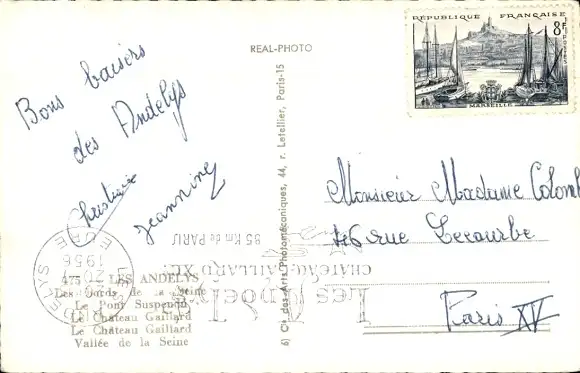 REAL-PHOTO
RÉPUBLIQUE FRANÇAISE
8F
POSTES
MARSEILLE
Bons baisers
des Andelys
Christiane
Jeannine
Monsieur Madame Colomb
46 rue Lecourbe
Paris XV
475 - LES ANDELYS
Les bords de la Seine
Le Pont Suspendu
Le Château Gaillard
Le Château Gaillard
Vallée de la Seine
6) Cie des Arts Photomécaniques, 44, r. Letellier, Paris-15
LES ANDELYS
EURE
1956
95 Km de PARIS
CHÂTEAU GAILLARD XII